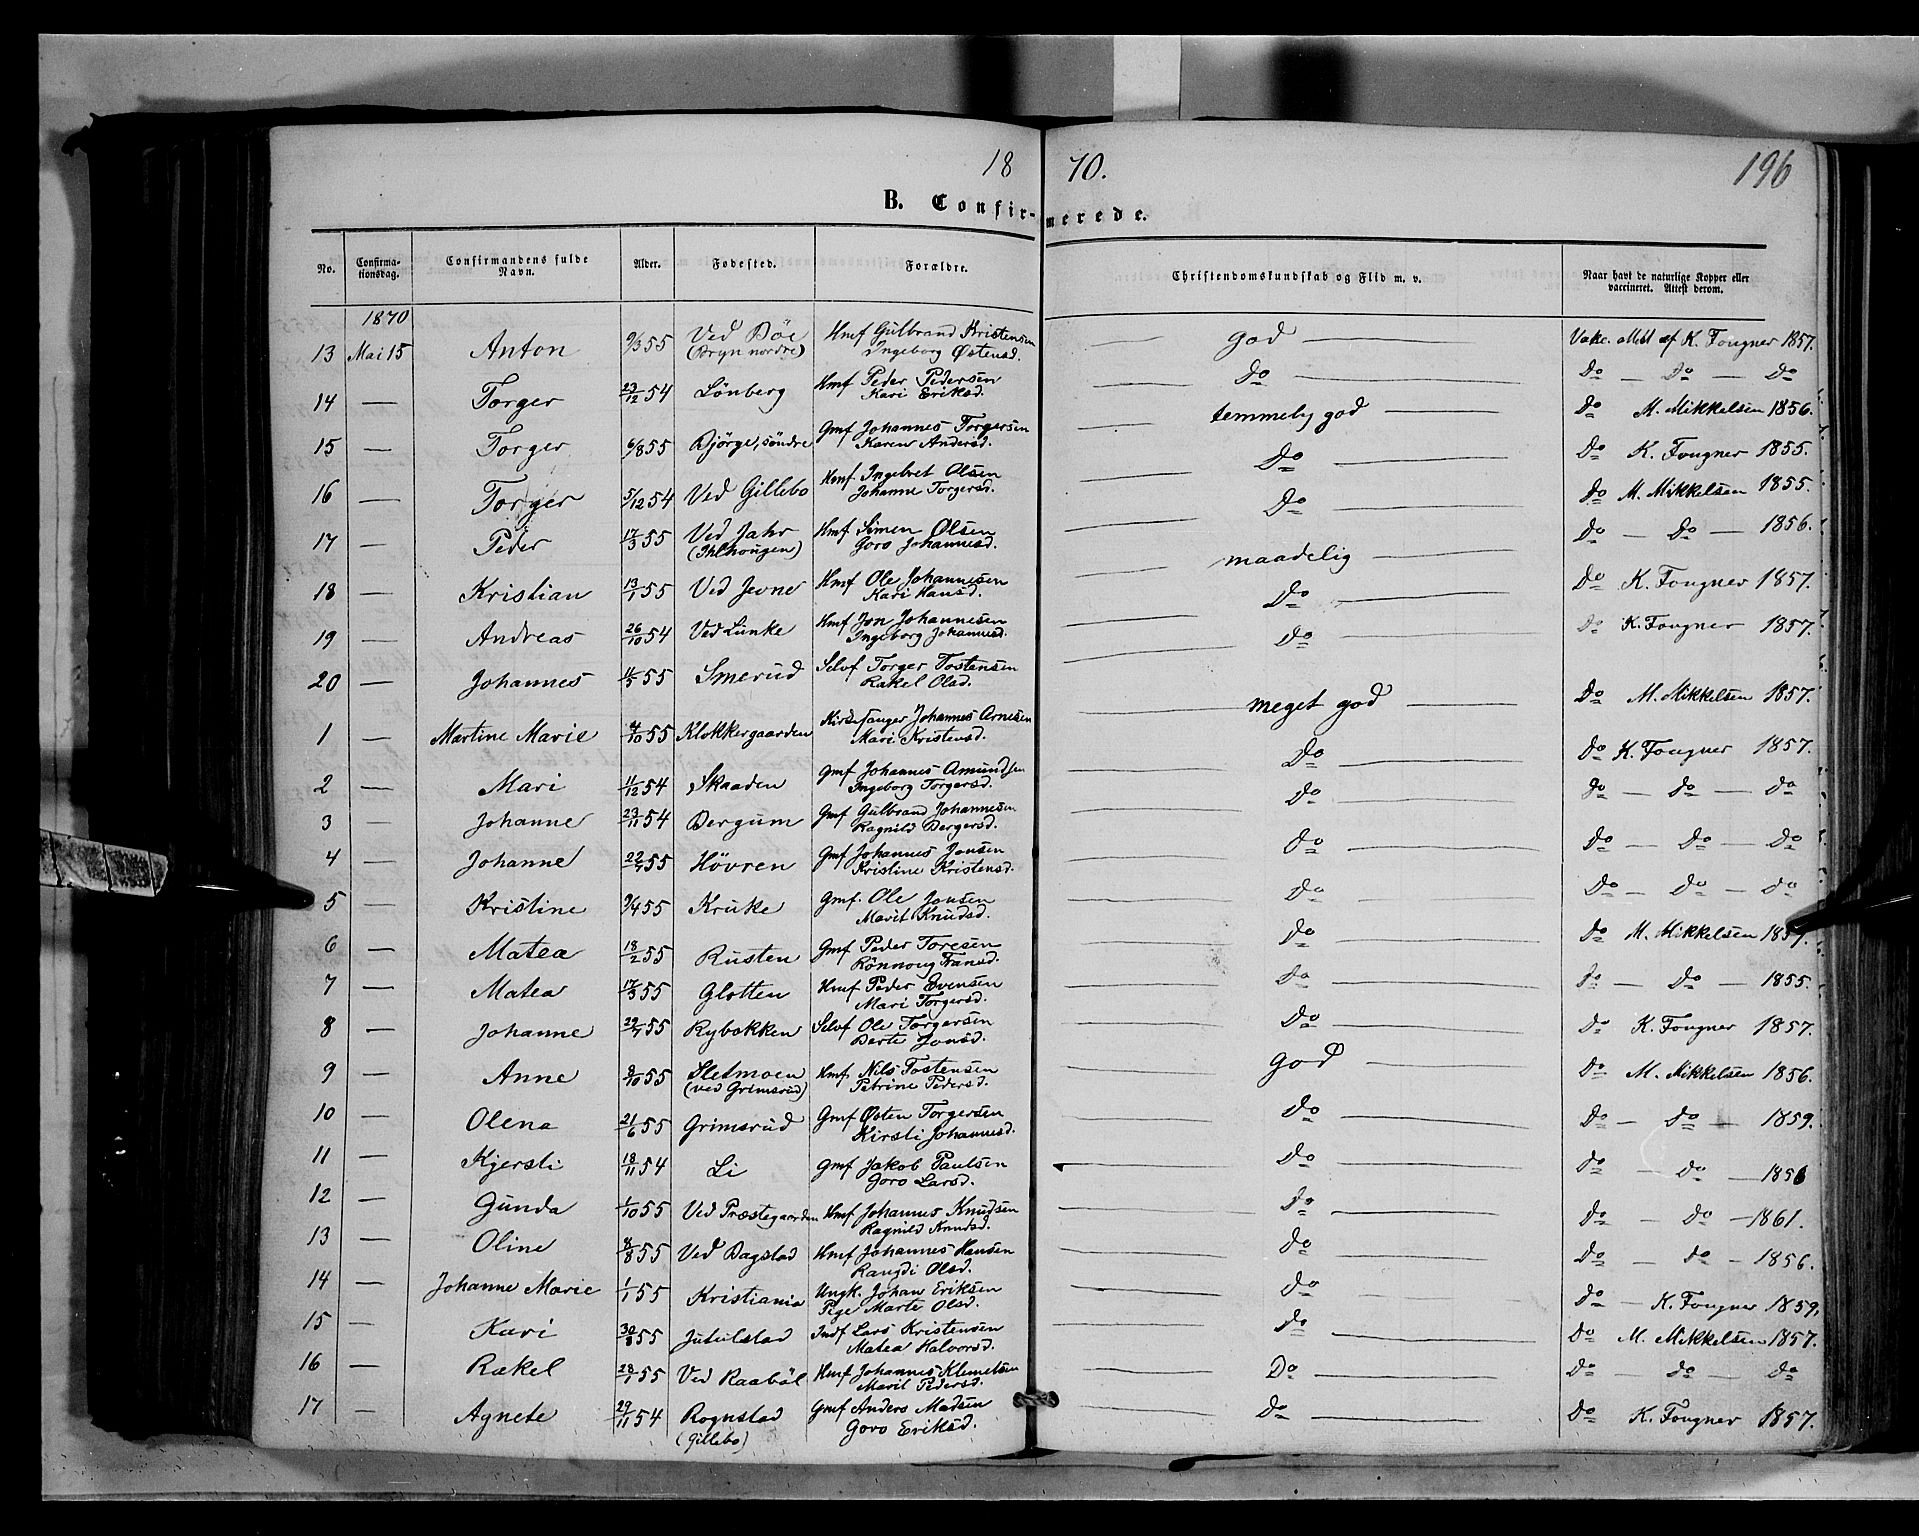 18 70.
196
B. Confirmerede.
No. Confirmationsdag. Confirmandens fulde Navn. Alder. Fødested. Forældre. Christendomskundskab og Flid m. v. Naar havt de naturlige Kopper eller vaccineret. Attest derom.
1870
13 Mai 15 Anton 9/3 55 Ved Böe (Bryn nordre) Hmf Gulbrand Kristensen Ingeborg Østensd. god Vakc. Att af K. Fougner 1857.
14 — Torger 23/12 54 Lönberg Hmf Peder Pedersen Kari Eriksd. Do Do — Do — Do
15 — Torger 6/8 55 Björge, söndre Gmf Johannes Torgersen Karen Andersd. temmelig god Do M. Mikkelsen 1856.
16 — Torger 5/12 54 Ved Gillebo Hmf. Ingebret Olsen Johanne Torgersd. Do Do K. Fougner 1855.
17 — Peder 17/3 55 Ved Jahr (Ihlhougen) Hmf Simen Olsen Goro Johannesd. Do Do M. Mikkelsen 1855.
18 — Kristian 13/1 55 Ved Jevne Hmf Ole Johannesen Kari Hansd. maadelig Do — Do — 1856.
19 — Andreas 26/10 54 Ved Lunke Hmf Jon Johannesen Ingeborg Johannesd. Do Do K. Fougner 1857.
20 — Johannes 11/5 55 Smerud Selvf Torger Tostensen Rakel Olsd. Do Do K. Fougner 1857.
1 — Martine Marie 4/10 55 Klokkergaarden Kirkesanger Johannes Arnesen Mari Kristensd. meget god Do M. Mikkelsen 1857.
2 — Mari 11/12 54 Skaaden Gmf Johannes Amundsen Ingeborg Torgersd. Do Do K. Fougner 1857.
3 — Johanne 23/11 54 Bergum Gmf Gulbrand Johannesen Ragnild Bergersd. Do Do — Do — Do
4 — Johanne 22/7 55 Hövren Gmf Johannes Jonsen Kristine Kristensd. Do Do — Do — Do
5 — Kristine 9/4 55 Kruke Gmf. Ole Jonsen Marit Knudsd. Do Do — Do — Do
6 — Matea 18/2 55 Rusten Gmf Peder Toresen Rönnoug Fransd. Do Do M. Mikkelsen 1857.
7 — Matea 17/3 55 Glotten Hmf Peder Evensen Mari Torgersd. Do Do — Do — 1855.
8 — Johanne 29/7 55 Rybakken Selvf Ole Torgersen Berte Jonsd. Do Do K. Fougner 1857.
9 — Anne 8/10 55 Sletmoen (ved Grimsrud) Hmf. Nils Tostensen Petrine Pedersd. god Do M. Mikkelsen 1856.
10 — Olena 21/6 55 Grimsrud Gmf Østen Torgersen Kirsti Johannesd. Do Do — Do — 1859.
11 — Kjersti 18/11 54 Li Gmf Jakob Paulsen Goro Larsd. Do Do — Do — 1856
12 — Gunda 1/10 55 Ved Præstegaarden Hmf Johannes Knudsen Ragnild Knudsd. Do Do — Do — 1861.
13 — Oline 8/8 55 Ved Bagstad Hmf Johannes Hansen Rangdi Olsd. Do Do — Do — 1856.
14 — Johanne Marie 1/1 55 Kristiania Ungk. Johan Eriksen Pige Marte Olsd. Do Do — K. Fougner 1859.
15 — Kari 30/8 55 Jutulstad Indf Lars Kristensen Matea Halvorsd. Do Do M. Mikkelsen 1857.
16 — Rakel 28/1 55 Ved Raaböl Hmf Johannes Klemetsen Marit Pedersd. Do Do — Do — Do
17 — Agnete 29/11 54 Rognstad (Gillebo) Gmf Anders Madsen Goro Eriksd. Do Do K. Fougner 1857.